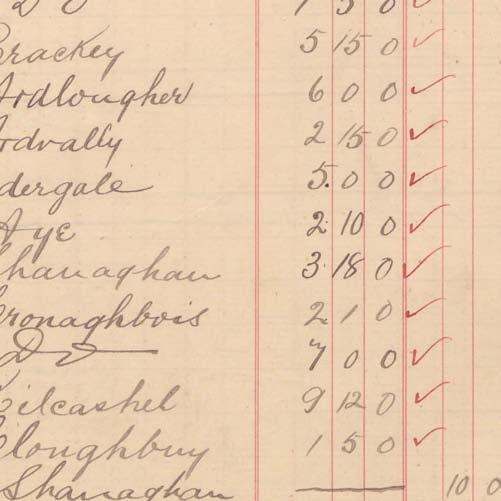 Do 1 5 0 ✓
Crackey 5 15 0 ✓
Ardlougher 6 0 0 ✓
Ardvally 2 15 0 ✓
dergale 5. 0 0 ✓
Aye 2 10 0 ✓
Shanaghan 3 18 0 ✓
Cronaghbois 2 1 0 ✓
Do 7 0 0 ✓
Kilcashel 9 12 0 ✓
Cloughbuy 1 5 0 ✓
Shanaghan 10 0